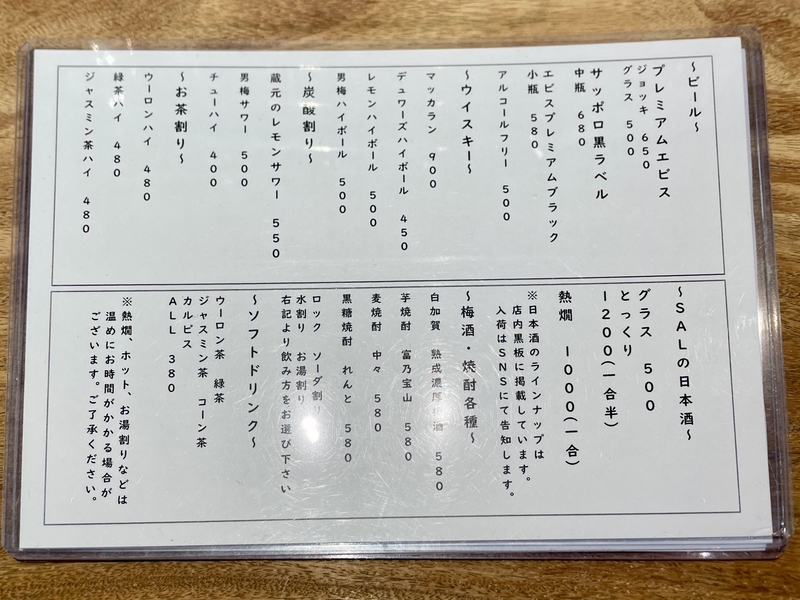 ～ビール～
プレミアムエビス
ジョッキ　６５０
グラス　５００
サッポロ黒ラベル
中瓶　６８０
エビスプレミアムブラック
小瓶　５８０
アルコールフリー　５００
～ウイスキー～
マッカラン　９００
デュワーズハイボール　４５０
レモンハイボール　５００
男梅ハイボール　５００
～炭酸割り～
蔵元のレモンサワー　５５０
男梅サワー　５００
チューハイ　４００
～お茶割り～
ウーロンハイ　４８０
緑茶ハイ　４８０
ジャスミン茶ハイ　４８０
～ＳＡＬの日本酒～
グラス　５００
とっくり
１２００(一合半)
熱燗　１０００(一合)
※日本酒のラインナップは
店内黒板に掲載しています。
入荷はＳＮＳにて告知します。
～梅酒・焼酎各種～
白加賀　熟成濃厚梅酒　５８０
芋焼酎　富乃宝山　５８０
麦焼酎　中々　５８０
黒糖焼酎　れんと　５８０
ロック　ソーダ割り
水割り　お湯割り
右記より飲み方をお選び下さい
～ソフトドリンク～
ウーロン茶　緑茶
ジャスミン茶　コーン茶
カルピス
ＡＬＬ　３８０
※熱燗、ホット、お湯割りなどは
温めにお時間がかかる場合が
ございます。ご了承ください。